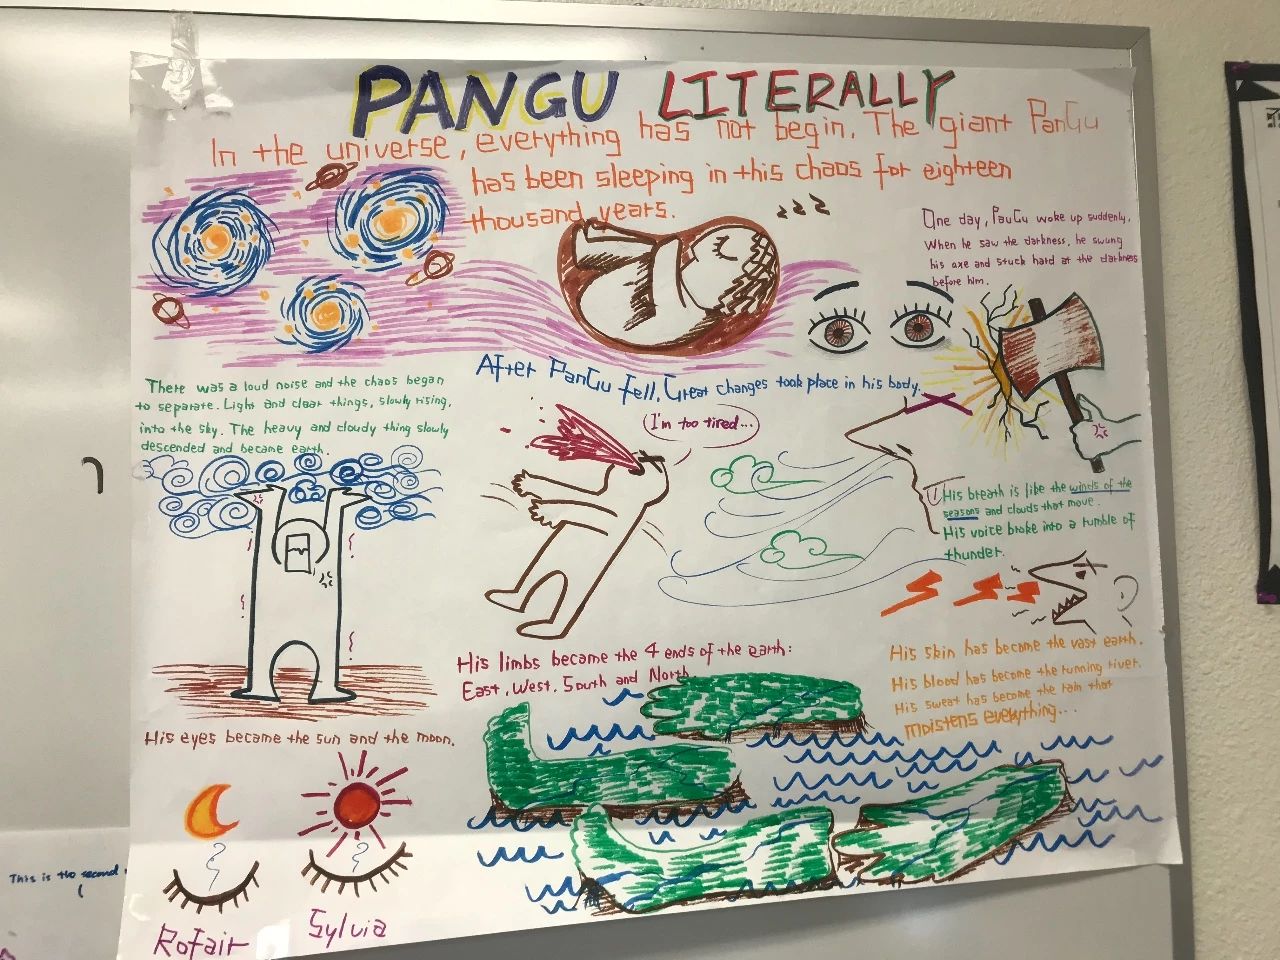 PANGU LITERALLY
In the universe, everything has not begin. The giant PanGu
has been sleeping in this chaos for eighteen
thousand years.
zzz
One day, PanGu woke up suddenly.
When he saw the darkness, he swung
his axe and stuck hard at the darkness
before him.
There was a loud noise and the chaos began
to separate. Light and clear things, slowly rising,
into the sky. The heavy and cloudy thing slowly
descended and became earth.
After PanGu fell, Great changes took place in his body.
I'm too tired...
His breath is like the winds of the
seasons and clouds that move.
His voice broke into a rumble of
thunder.
His limbs became the 4 ends of the earth:
East, West, South and North.
His skin has become the vast earth.
His blood has become the running river.
His sweat has become the rain that
moistens everything...
His eyes became the sun and the moon.
Rofair
Sylvia
This is the second